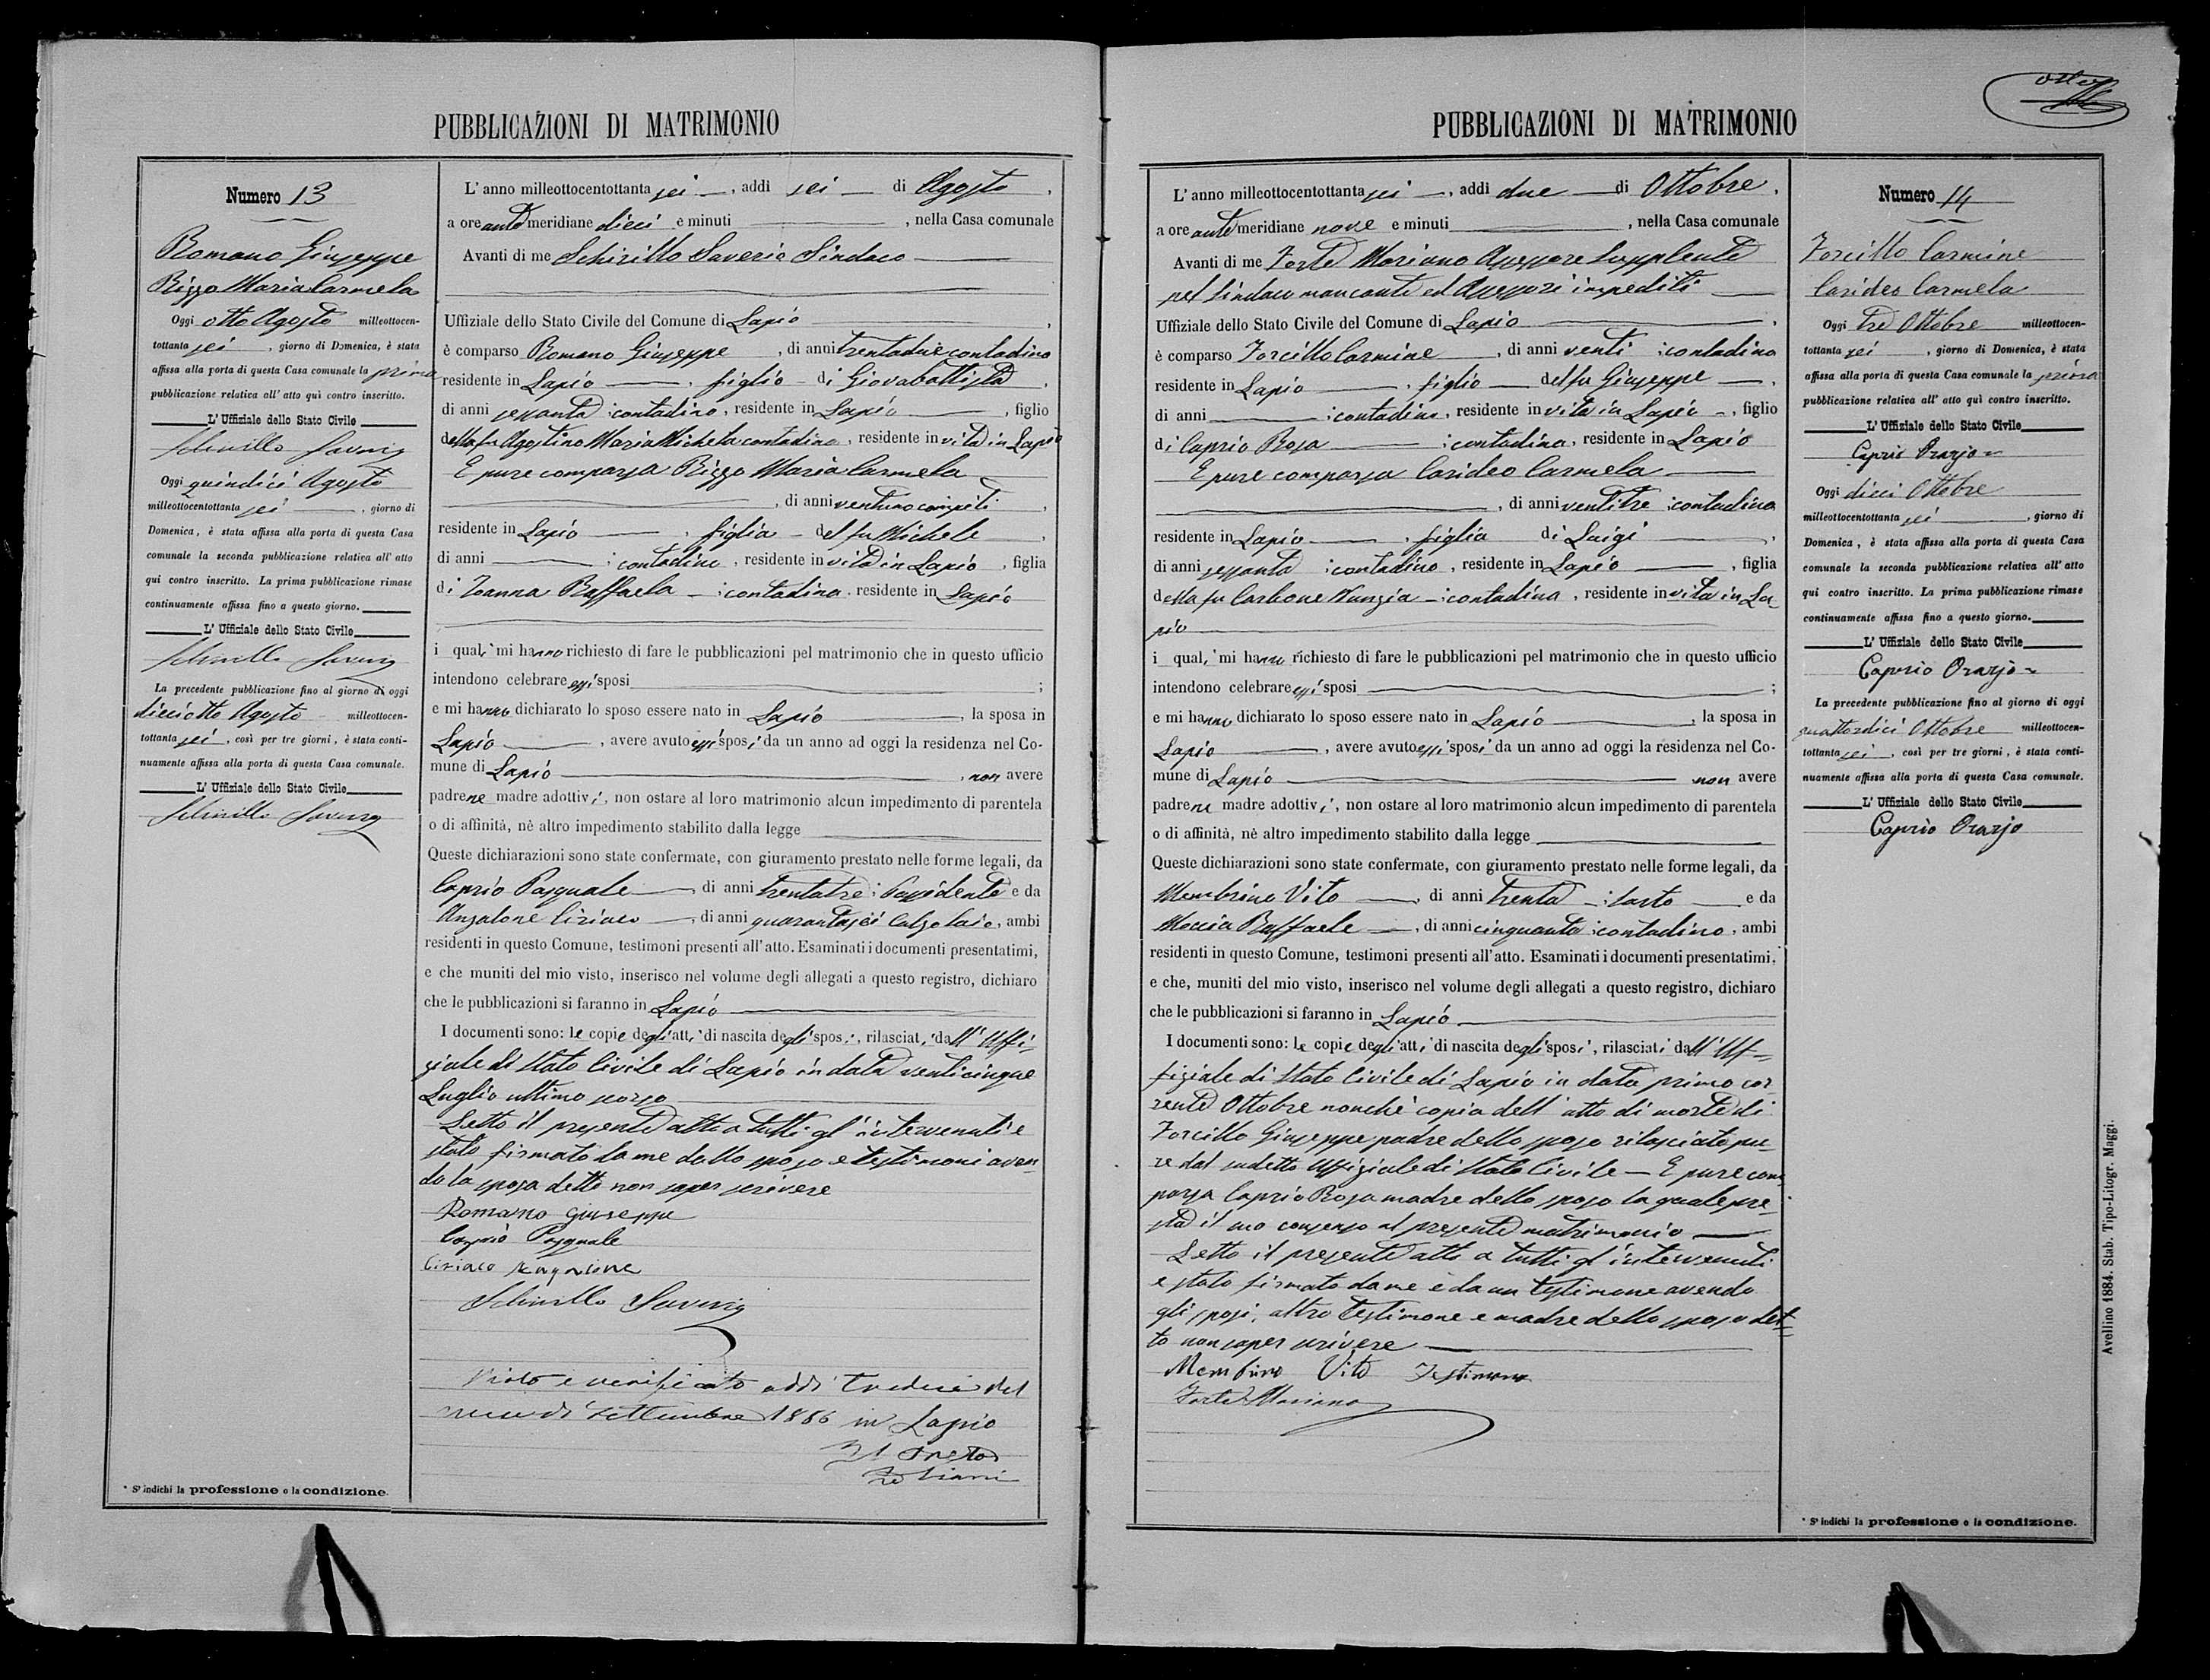 PUBBLICAZIONI DI MATRIMONIO
Numero 13
Romano Giuseppe
Rizzo Maria Carmela
Oggi otto Agosto milleottocen-
tottanta sei, giorno di Domenica, è stata
affissa alla porta di questa Casa comunale la prima
pubblicazione relativa all' atto quì contro inscritto.
L' Uffiziale dello Stato Civile
Schirillo Saverio
Oggi quindici Agosto
milleottocentottanta sei, giorno di
Domenica, è stata affissa alla porta di questa Casa
comunale la seconda pubblicazione relativa all' atto
qui contro inscritto. La prima pubblicazione rimase
continuamente affissa fino a questo giorno.
L' Uffiziale dello Stato Civile
Schirillo Saverio
La precedente pubblicazione fino al giorno di oggi
diciotto Agosto milleottocen-
tottanta sei, così per tre giorni, è stata conti-
nuamente affissa alla porta di questa Casa comunale.
L' Uffiziale dello Stato Civile
Schirillo Saverio
* S' indichi la professione o la condizione.
L' anno milleottocentottanta sei, addì sei di Agosto,
a ore antimeridiane dieci e minuti, nella Casa comunale
Avanti di me Schirillo Saverio Sindaco
Uffiziale dello Stato Civile del Comune di Lapio,
è comparso Romano Giuseppe, di anni trentadue contadino
residente in Lapio, figlio di Giovabattista,
di anni sessanta contadino, residente in Lapio, figlio
della fu Agostino Maria Michela contadina, residente in vita in Lapio
E pure comparsa Rizzo Maria Carmela
, di anni ventuno compiti,
residente in Lapio, figlia del fu Michele,
di anni : contadino, residente in vita in Lapio, figlia
di Ioanna Raffaela : contadina, residente in Lapio
i quali mi hanno richiesto di fare le pubblicazioni pel matrimonio che in questo ufficio
intendono celebrare essi sposi ;
e mi hanno dichiarato lo sposo essere nato in Lapio, la sposa in
Lapio, avere avuto essi sposi da un anno ad oggi la residenza nel Co-
mune di Lapio, non avere
padre ne madre adottivi, non ostare al loro matrimonio alcun impedimento di parentela
o di affinità, nè altro impedimento stabilito dalla legge
Queste dichiarazioni sono state confermate, con giuramento prestato nelle forme legali, da
Caprio Pasquale, di anni trentatre : Possidente e da
Anzalone Ciriaco, di anni quarantasei Calzolaio, ambi
residenti in questo Comune, testimoni presenti all' atto. Esaminati i documenti presentatimi,
e che muniti del mio visto, inserisco nel volume degli allegati a questo registro, dichiaro
che le pubblicazioni si faranno in Lapio
I documenti sono: le copie degli atti di nascita degli sposi, rilasciati dall' Uffi-
ziale di Stato Civile di Lapio in data venticinque
Luglio ultimo scorso
Letto il presente atto a tutti gl' intervenuti e
stato firmato da me dallo sposo e testimoni aven-
do la sposa detto non saper scrivere
Romano Giuseppe
Caprio Pasquale
Ciriaco
Schirillo Saverio
Visto e verificato addì tredici del
mese di Settembre 1886 in Lapio
Il Pretore
PUBBLICAZIONI DI MATRIMONIO
L' anno milleottocentottanta sei, addì due di Ottobre,
a ore antimeridiane nove e minuti, nella Casa comunale
Avanti di me Forte Mariano Assessore Supplente
pel Sindaco mancante ed Assessori impediti
Uffiziale dello Stato Civile del Comune di Lapio,
è comparso Forcillo Carmine, di anni venti : contadino
residente in Lapio, figlio del fu Giuseppe,
di anni : contadino, residente in vita in Lapio, figlio
di Caprio Rosa : contadina, residente in Lapio
E pure comparsa Carideo Carmela
, di anni ventitre : contadina
residente in Lapio, figlia di Luigi,
di anni sessanta : contadino, residente in Lapio, figlia
della fu Carbone Nunzia : contadina, residente in vita in La
pio
i quali mi hanno richiesto di fare le pubblicazioni pel matrimonio che in questo ufficio
intendono celebrare essi sposi ;
e mi hanno dichiarato lo sposo essere nato in Lapio, la sposa in
Lapio, avere avuto essi sposi da un anno ad oggi la residenza nel Co-
mune di Lapio non avere
padre ne madre adottivi, non ostare al loro matrimonio alcun impedimento di parentela
o di affinità, nè altro impedimento stabilito dalla legge
Queste dichiarazioni sono state confermate, con giuramento prestato nelle forme legali, da
Membrino Vito, di anni trenta : sarto e da
Moccia Raffaele, di anni cinquanta : contadino, ambi
residenti in questo Comune, testimoni presenti all' atto. Esaminati i documenti presentatimi,
e che, muniti del mio visto, inserisco nel volume degli allegati a questo registro, dichiaro
che le pubblicazioni si faranno in Lapio
I documenti sono: le copie degli atti di nascita degli sposi, rilasciati dall' Uf-
fiziale di Stato Civile di Lapio in data primo cor
rente Ottobre nonchè copia dell' atto di morte di
Forcillo Giuseppe padre dello sposo rilasciato pu-
re dal sudetto Uffiziale di Stato Civile — E pure com
parsa Caprio Rosa madre dello sposo la quale pre-
sta il suo consenso al presente matrimonio
Letto il presente atto a tutti gl' intervenuti
e stato firmato da me e da un testimone avendo
gli sposi, altro testimone e madre dello sposo det-
to non saper scrivere
Membrino Vito Testimone
Forte Mariano
Numero 14
Forcillo Carmine
Carideo Carmela
Oggi tre Ottobre milleottocen-
tottanta sei, giorno di Domenica, è stata
affissa alla porta di questa Casa comunale la prima
pubblicazione relativa all' atto quì contro inscritto.
L' Uffiziale dello Stato Civile
Caprio Orazio
Oggi dieci Ottobre
milleottocentottanta sei, giorno di
Domenica, è stata affissa alla porta di questa Casa
comunale la seconda pubblicazione relativa all' atto
qui contro inscritto. La prima pubblicazione rimase
continuamente affissa fino a questo giorno.
L' Uffiziale dello Stato Civile
Caprio Orazio
La precedente pubblicazione fino al giorno di oggi
quattordici Ottobre milleottocen-
tottanta sei, così per tre giorni, è stata conti-
nuamente affissa alla porta di questa Casa comunale.
L' Uffiziale dello Stato Civile
Caprio Orazio
* S' indichi la professione o la condizione.
Avellino 1884. Stab. Tipo-Litogr. Maggi.